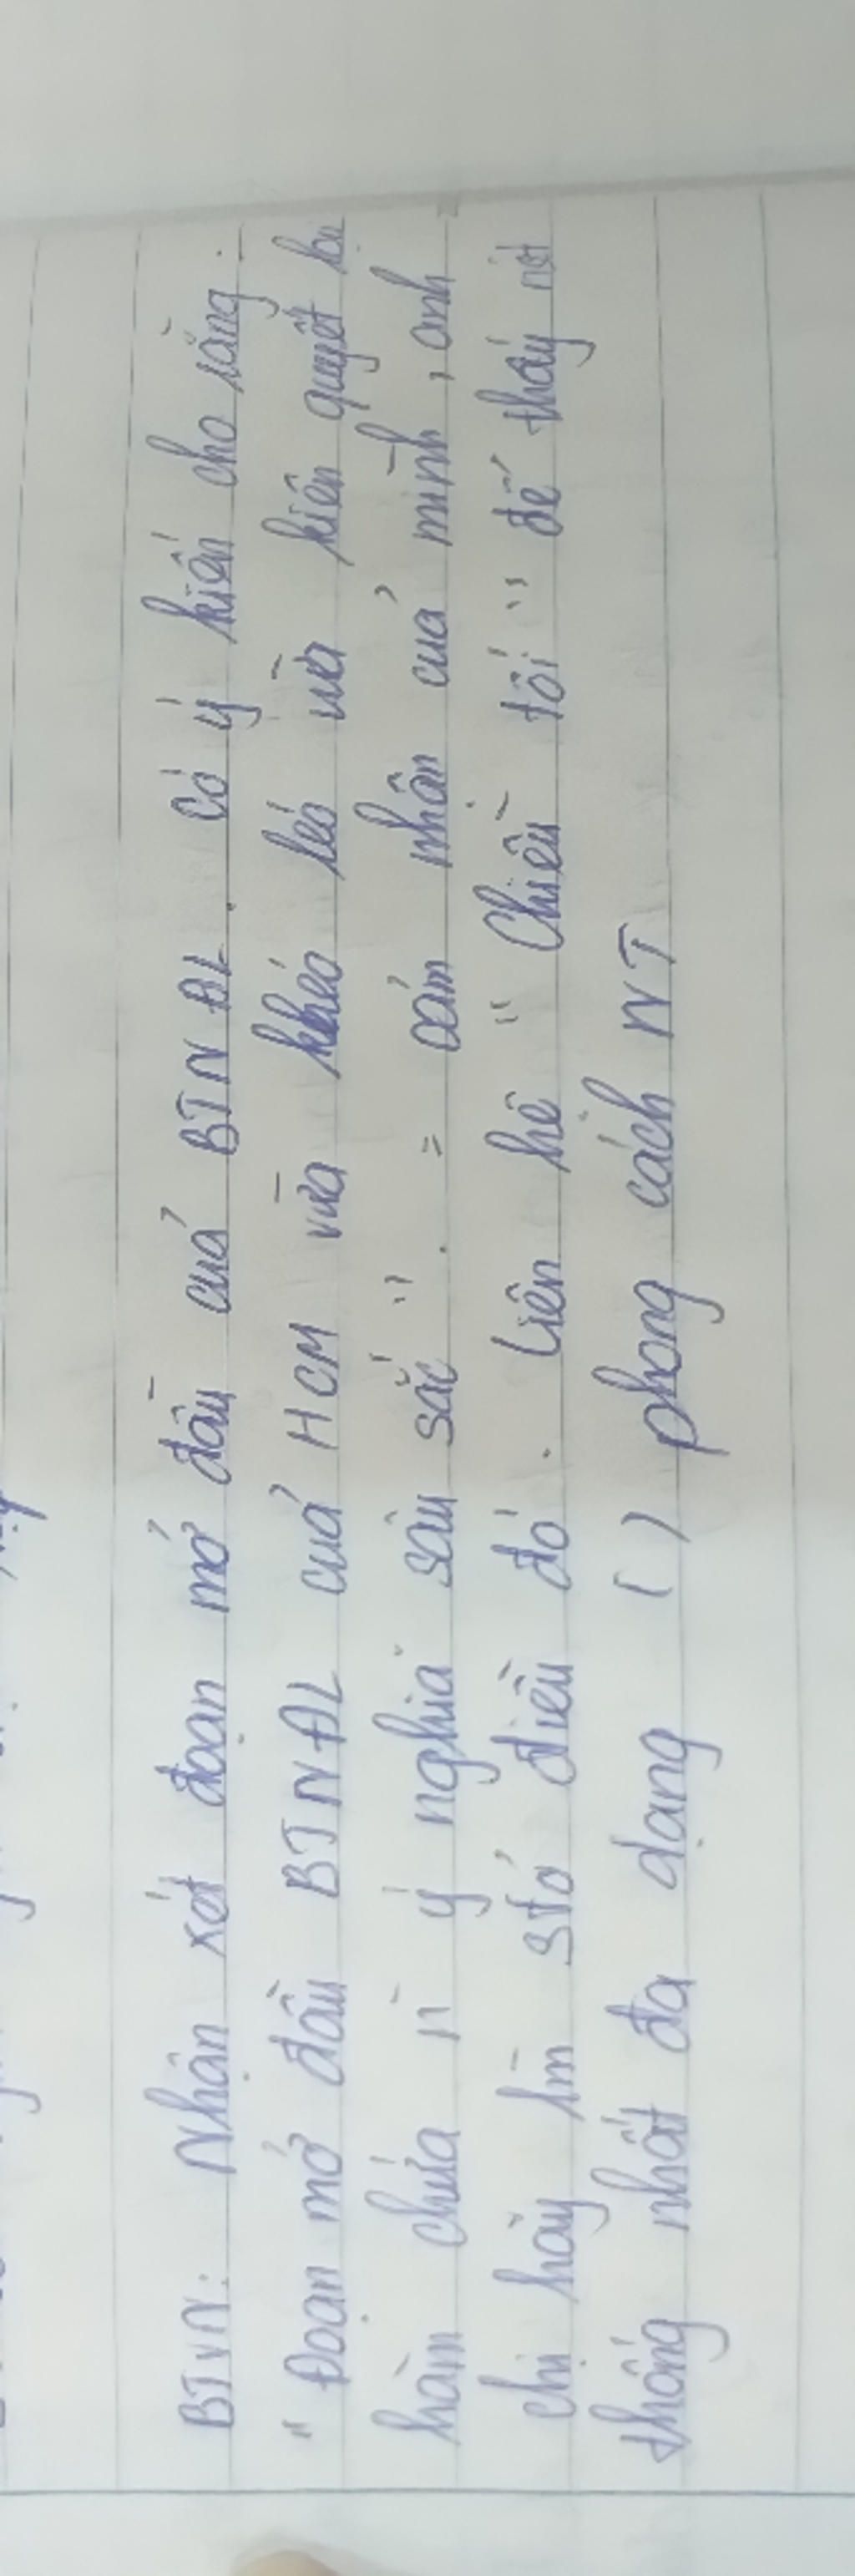 BTVN: Nhận xét đoạn mở đầu của BTNĐL. Có ý kiến cho rằng:
"Đoạn mở đầu BTNĐL của HCM vừa khéo léo vừa kiên quyết lại
hàm chứa ý nghĩa sâu sắc". = cảm nhận của mình, anh
chị hãy làm stỏ điều đó. Liên hệ "Chiều tối" để thấy nét
thống nhất đa dạng () phong cách NT